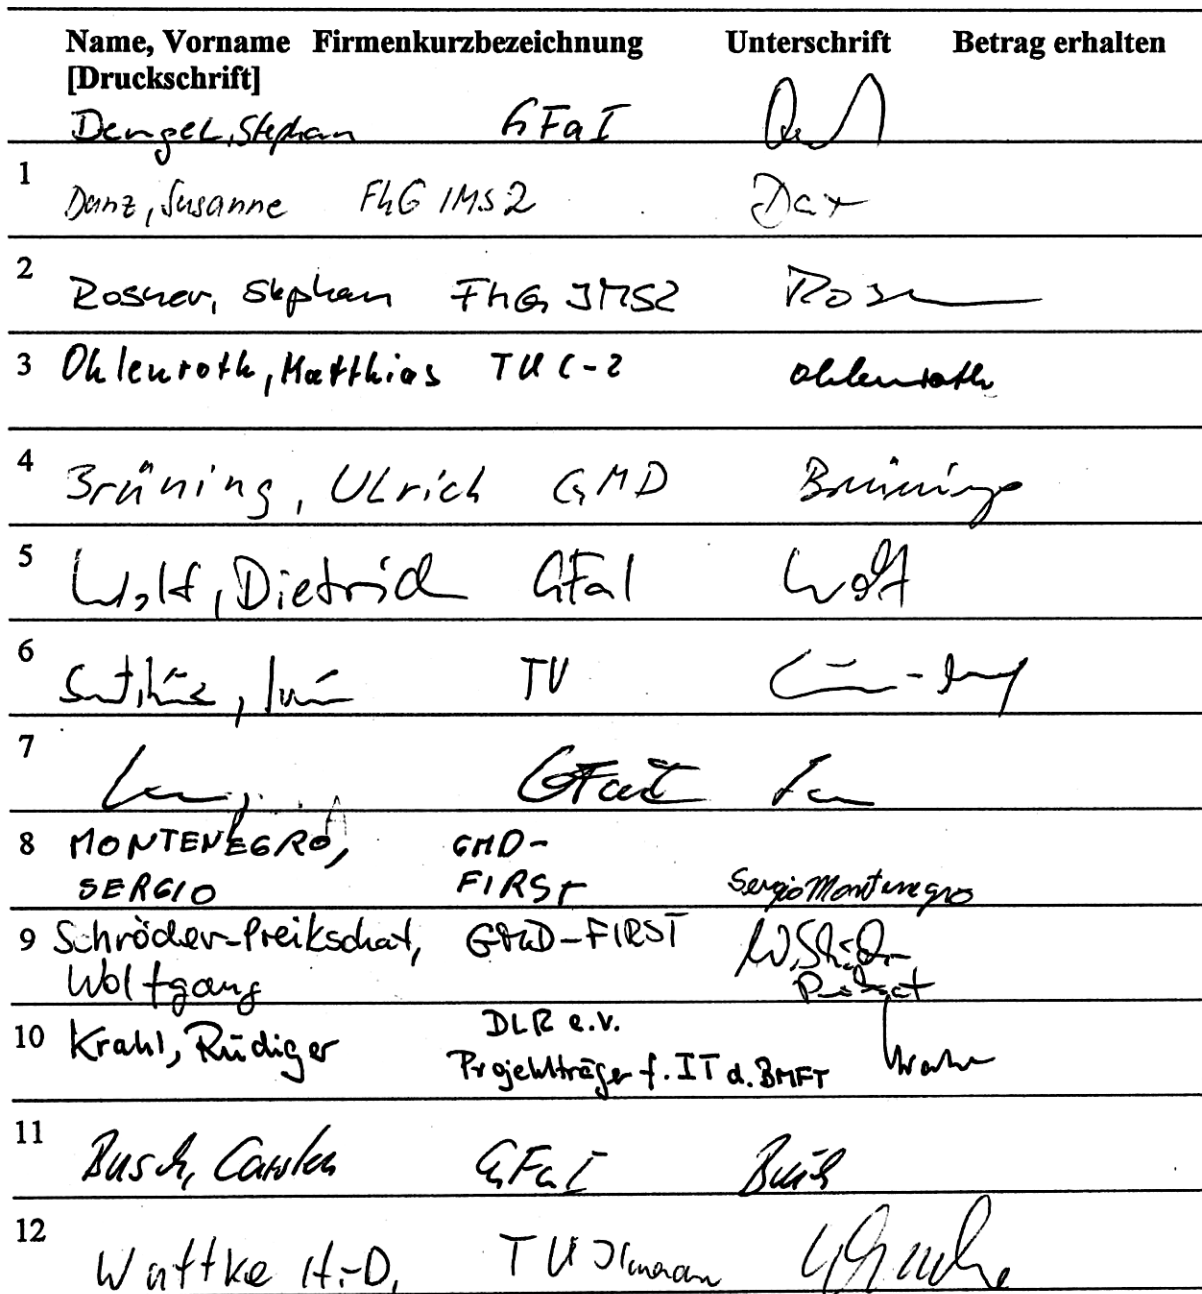 Name, Vorname Firmenkurzbezeichnung Unterschrift Betrag erhalten
[Druckschrift]
Dengel, Stephan GFaI
1 Danz, Susanne FhG IMS2
2 Rosner, Stephan FhG IMS2 Rosn
3 Ohlenroth, Matthias TUC-2 Ohlenroth
4 Brüning, Ulrich GMD Brüning
5 Wolf, Dietrich GFaI Wolf
6 TU
7 GFaI
8 MONTENEGRO, GMD-
SERGIO FIRST Sergio Montenegro
9 Schröder-Preikschat, GMD-FIRST W. Schröder-
Wolfgang Preikschat
10 Krahl, Rüdiger DLR e.V. Krahl
Projektträger f. IT d. BMFT
11 Busch, Carsten GFaI Busch
12 Wuttke H.-D. TU Ilmenau